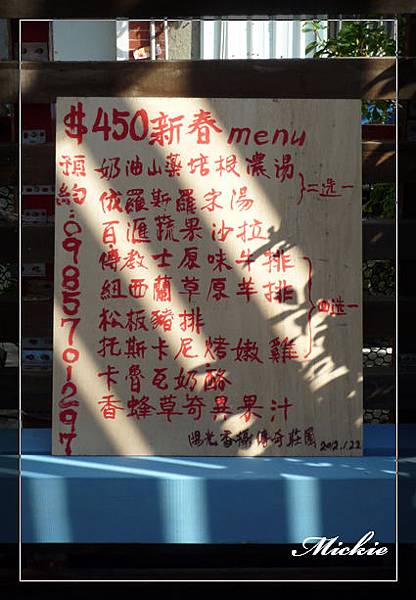 $450新春menu
預約:0985701297
奶油山藥培根濃湯
俄羅斯羅宋湯
二选一
百滙蔬果沙拉
傳教士原味牛排
紐西蘭草原羊排
松板豬排
托斯卡尼烤嫩雞
四选一
卡魯瓦奶酪
香蜂草奇異果汁
陽光香榭傳奇莊園 2012.1.22
Mickie
Mickie